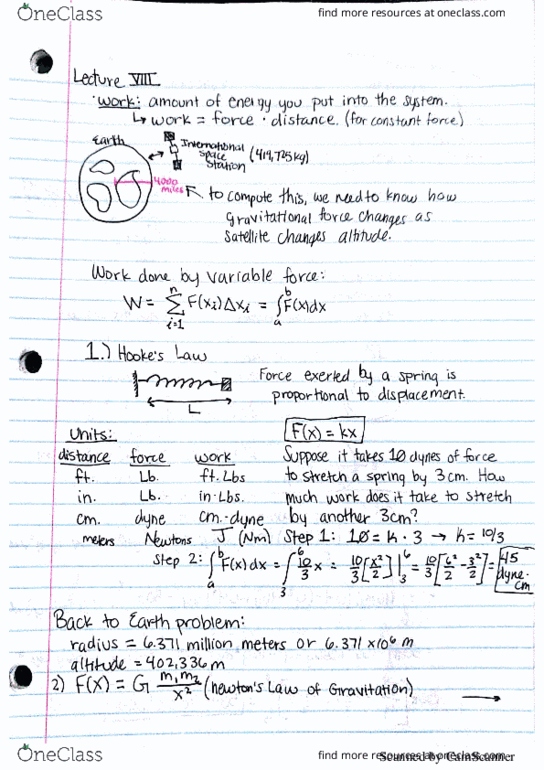 OneClass find more resources at oneclass.com
Lecture VIII
· Work: amount of energy you put into the system.
↳ work = force · distance. (for constant force)
Earth
International
Space
Station (419,725kg)
4000
miles
to compute this, we need to know how
gravitational force changes as
satellite changes altitude.
Work done by variable force:
W = n∑i=1 F(xi)Δxi = ∫ab F(x)dx
1.) Hooke's Law
Force exerted by a spring is
proportional to displacement.
L
F(x) = kx
Units:
distance force work
ft. Lb. ft·Lbs
in. Lb. in·Lbs.
cm. dyne cm·dyne
meters Newtons J (Nm)
Suppose it takes 10 dynes of force
to stretch a spring by 3cm. How
much work does it take to stretch
by another 3cm?
Step 1: 10 = k · 3 → k = 10/3
Step 2: ∫ab F(x)dx = ∫36 10/3 x = 10/3 [x²/2] |36 = 10/3 [6²/2 - 3²/2] = 45 dyne·cm
Back to Earth problem:
radius = 6.371 million meters or 6.371 x10⁶ m
altitude = 402,336 m
2) F(x) = G m₁m₂/x² (newton's Law of Gravitation) →
OneClass find more resources at oneclass.com
Scanned by CamScanner